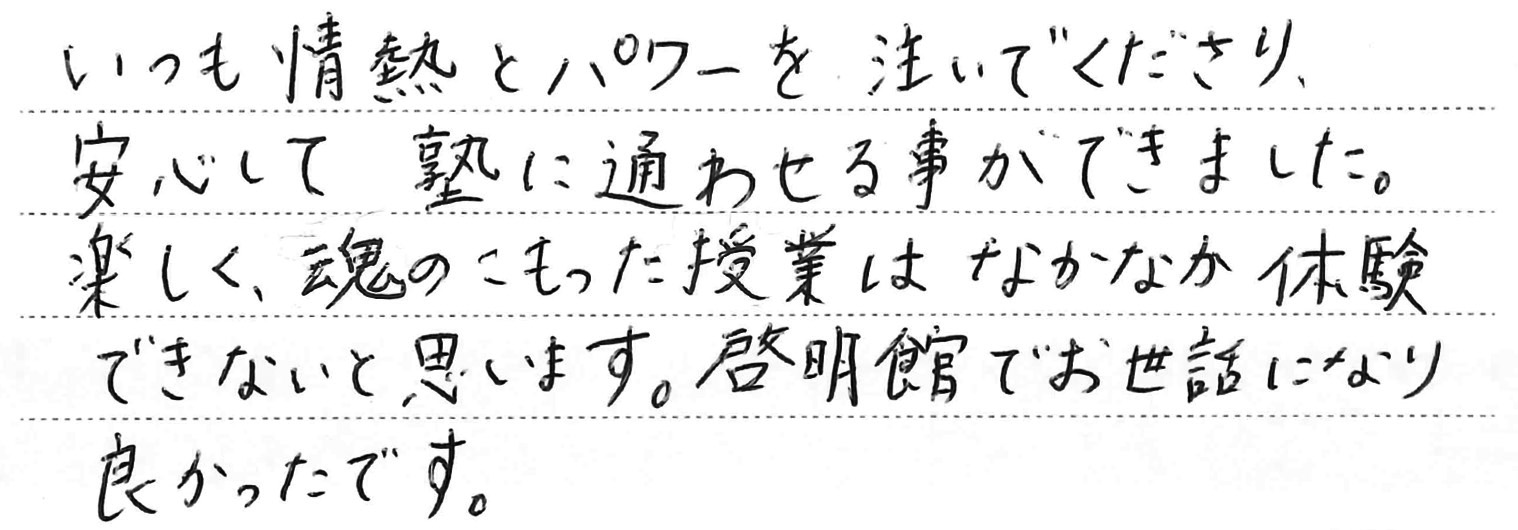 いつも情熱とパワーを注いでくださり、
安心して塾に通わせる事ができました。
楽しく、魂のこもった授業はなかなか体験
できないと思います。啓明館でお世話になり
良かったです。